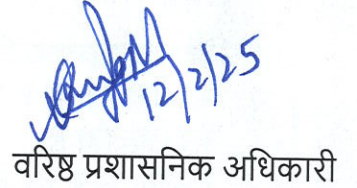 12/2/25
वरिष्ठ प्रशासनिक अधिकारी